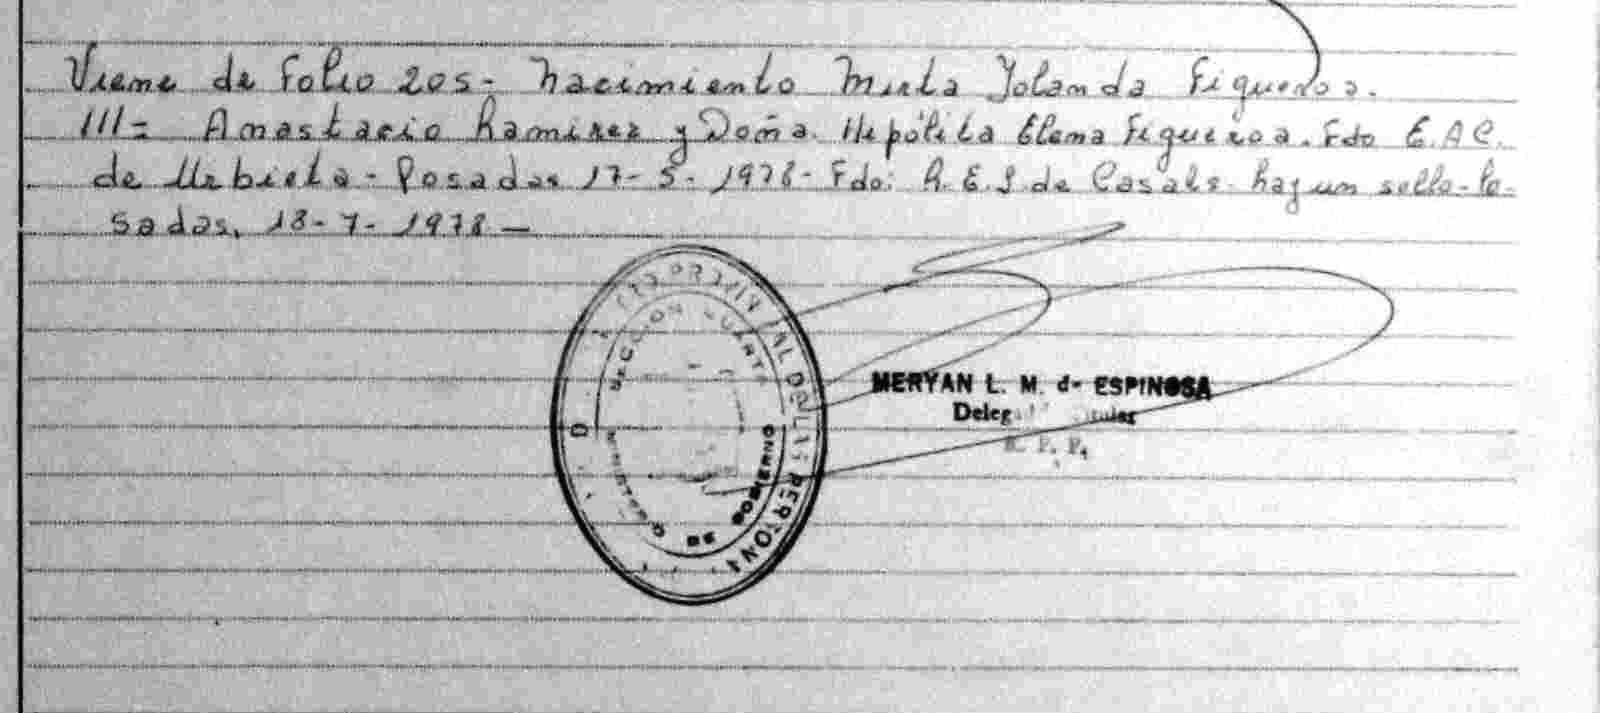 Viene de Folio 205- Nacimiento Mirta Yolanda Figueroa.
III= Anastacio Ramirez y Doña Hipólita Elena Figueroa. Fdo E.A.C.
de Urbieta- Posadas 17-5-1978- Fdo: R.E.S de Casals- hay un sello- Po-
sadas, 18-7-1978 —
SECCION CUARTA
MINISTERIO DE GOBIERNO
MERYAN L. M. de ESPINOSA